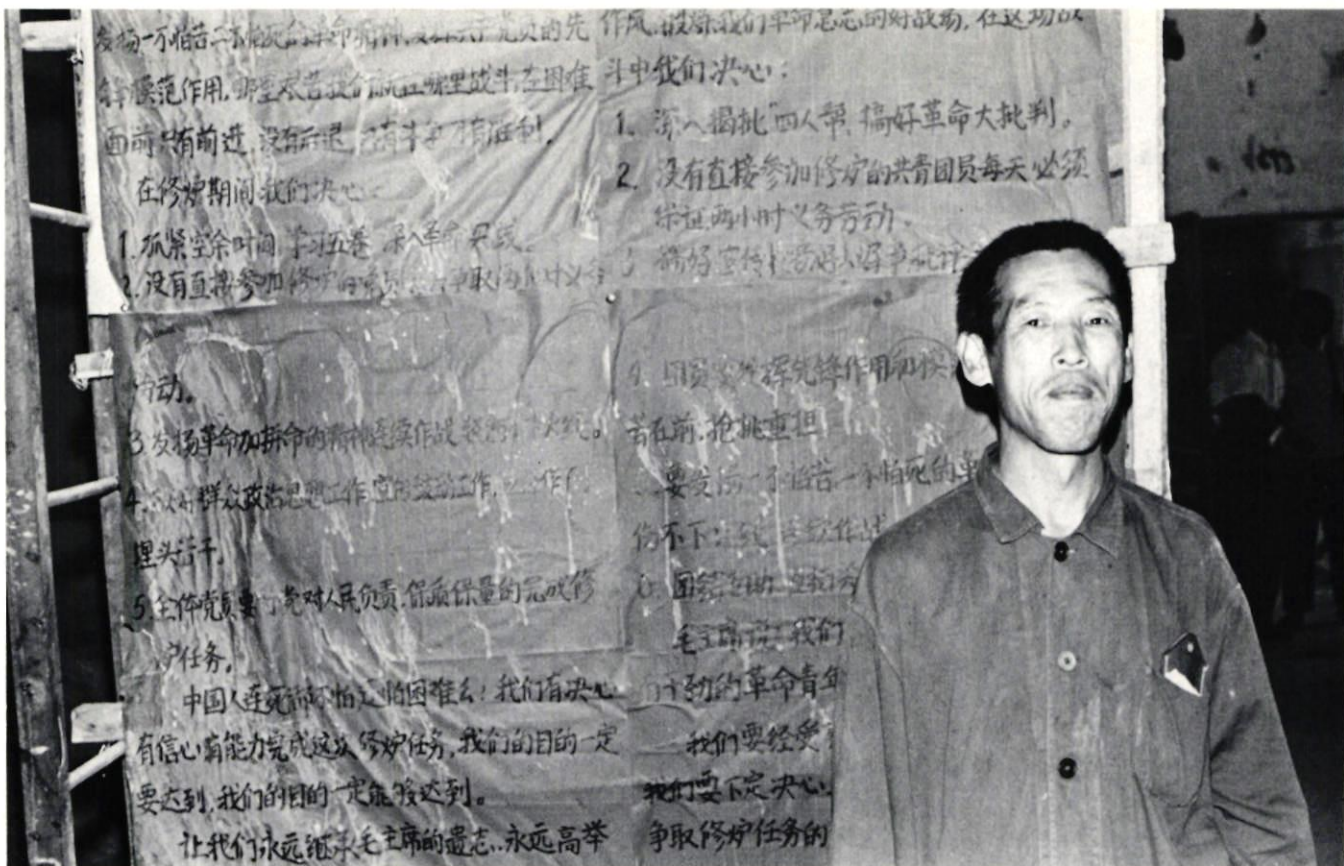 发扬一不怕苦二不怕死的革命精神,发挥共产党员的先
锋模范作用,哪里艰苦我们就在哪里战斗,在困难
面前只有前进,没有后退,只有斗争才有胜利。
在修炉期间我们决心:
1. 抓紧空余时间,学习五卷,深入革命
2. 没有直接参加修炉的党员 争取两小时义务
劳动。
3 发扬革命加拼命的精神连续作战 不下火线。
4. 做好群众政治思想工作,宣传鼓动工作,
埋头苦干。
5. 全体党员要 党对人民负责,保质保量的完成修
炉任务。
中国人连死都不怕还怕困难么!我们有决心
有信心有能力完成这次修炉任务,我们的目的一定
要达到,我们的目的一定能够达到。
让我们永远继承毛主席的遗志,永远高举
作风,锻炼我们革命意志的好战场,在这场战
斗中我们决心:
1. 深入揭批“四人帮”,搞好革命大批判。
2. 没有直接参加修炉的共青团员每天必须
保证两小时义务劳动。
3 搞好宣传 好人好事
4. 团员要发挥先锋作用
苦在前,抢挑重担
要发扬一不怕苦二不怕死的革
伤不下 连续作战
6. 团结互助
毛主席说:我们
的革命青年
我们要经受
我们要下定决心
争取修炉任务的